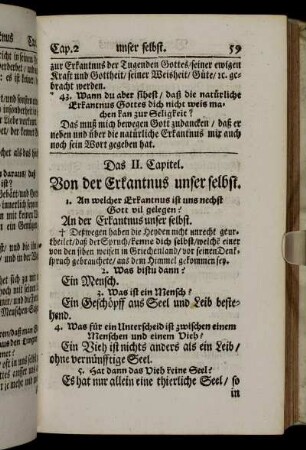 Cap.2 unser selbst. 59
zur Erkantnus der Tugenden Gottes/ seiner ewigen
Krafft und Gottheit/ seiner Weisheit/ Güte/ ꝛc. ge-
bracht werden.
43. Wann du aber sihest/ daß die natürliche
Erkantnus Gottes dich nicht weis ma-
chen kan zur Seligkeit?
Das muß mich bewegen Gott zudencken/ daß er
neben und über die natürliche Erkantnis mir auch
noch sein Wort gegeben hat.
Das II. Capitel.
Von der Erkantnus unser selbst.
1. An welcher Erkantnus ist uns nechst
Gott vil gelegen?
An der Erkantnus unser selbst.
† Deßwegen haben die Heyden nicht unrecht geur-
theilet/ daß der Spruch/ kenne dich selbst/ welchē einer
von den siben weisen in Griechenland/ vor seinen Denk-
spruch gebrauchete/ aus dem Himmel gekommen sey.
2. Was bistu dann?
Ein Mensch.
3. Was ist ein Mensch?
Ein Geschöpff aus Seel und Leib beste-
hend.
4. Was für ein Unterscheid ist zwischen einem
Menschen und einem Vieh?
Ein Vieh ist nichts anders als ein Leib/
ohne vernünfftige Seel.
5. Hat dann das Vieh keine Seel?
Es hat nur allein eine thierliche Seel/ so
in